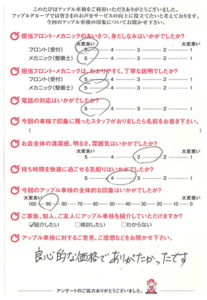 このたびはアップル車検をご利用いただきありがとうございました。
アップルグループでは皆さまのお声をサービスの向上に役立てたいと考えております。
今回のアップル車検の印象についてお聞かせ下さい。
担当フロント・メカニックのあいさつ、身だしなみはいかがでしたか?
大変良い 大変悪い
フロント(受付) 5 4 3 2 1
メカニック(整備士) 5 4 3 2 1
担当フロント・メカニックは、わかりやすく、丁寧な説明でしたか?
大変良い 大変悪い
フロント(受付) 5 4 3 2 1
メカニック(整備士) 5 4 3 2 1
電話の対応はいかがでしたか?
大変良い 大変悪い
5 4 3 2 1
今回の車検で印象に残ったスタッフがおりましたら名前をお書き下さい。
( )
お店全体の清潔感、明るさ、雰囲気はいかがでしたか?
大変良い 大変悪い
5 4 3 2 1
待ち時間を快適に過ごせる気配りはいかがでしたか?
大変良い 大変悪い
5 4 3 2 1
今回のアップル車検の全体的な印象はいかがでしたか?
大変良い 大変悪い
100 90 80 70 60 50 40 30 20 10 0
ご家族、知人、ご友人にアップル車検を紹介していただけますか?
紹介したい 検討したい わからない
アップル車検に対するご意見、ご感想などをお聞かせ下さい。
良心的な価格でありがたかったです
アンケートのご協力ありがとうございました。